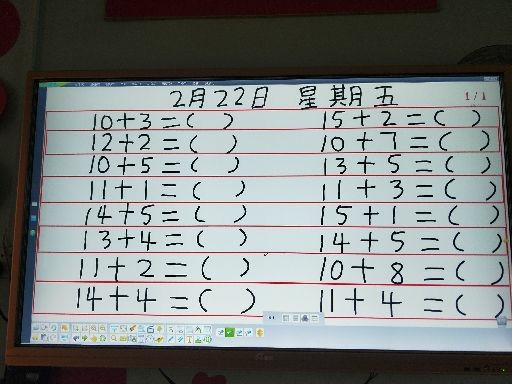 2月22日 星期五
1/1
10+3=( ) 15+2=( )
12+2=( ) 10+7=( )
10+5=( ) 13+5=( )
11+1=( ) 11+3=( )
14+5=( ) 15+1=( )
13+4=( ) 14+5=( )
11+2=( ) 10+8=( )
14+4=( ) 11+4=( )